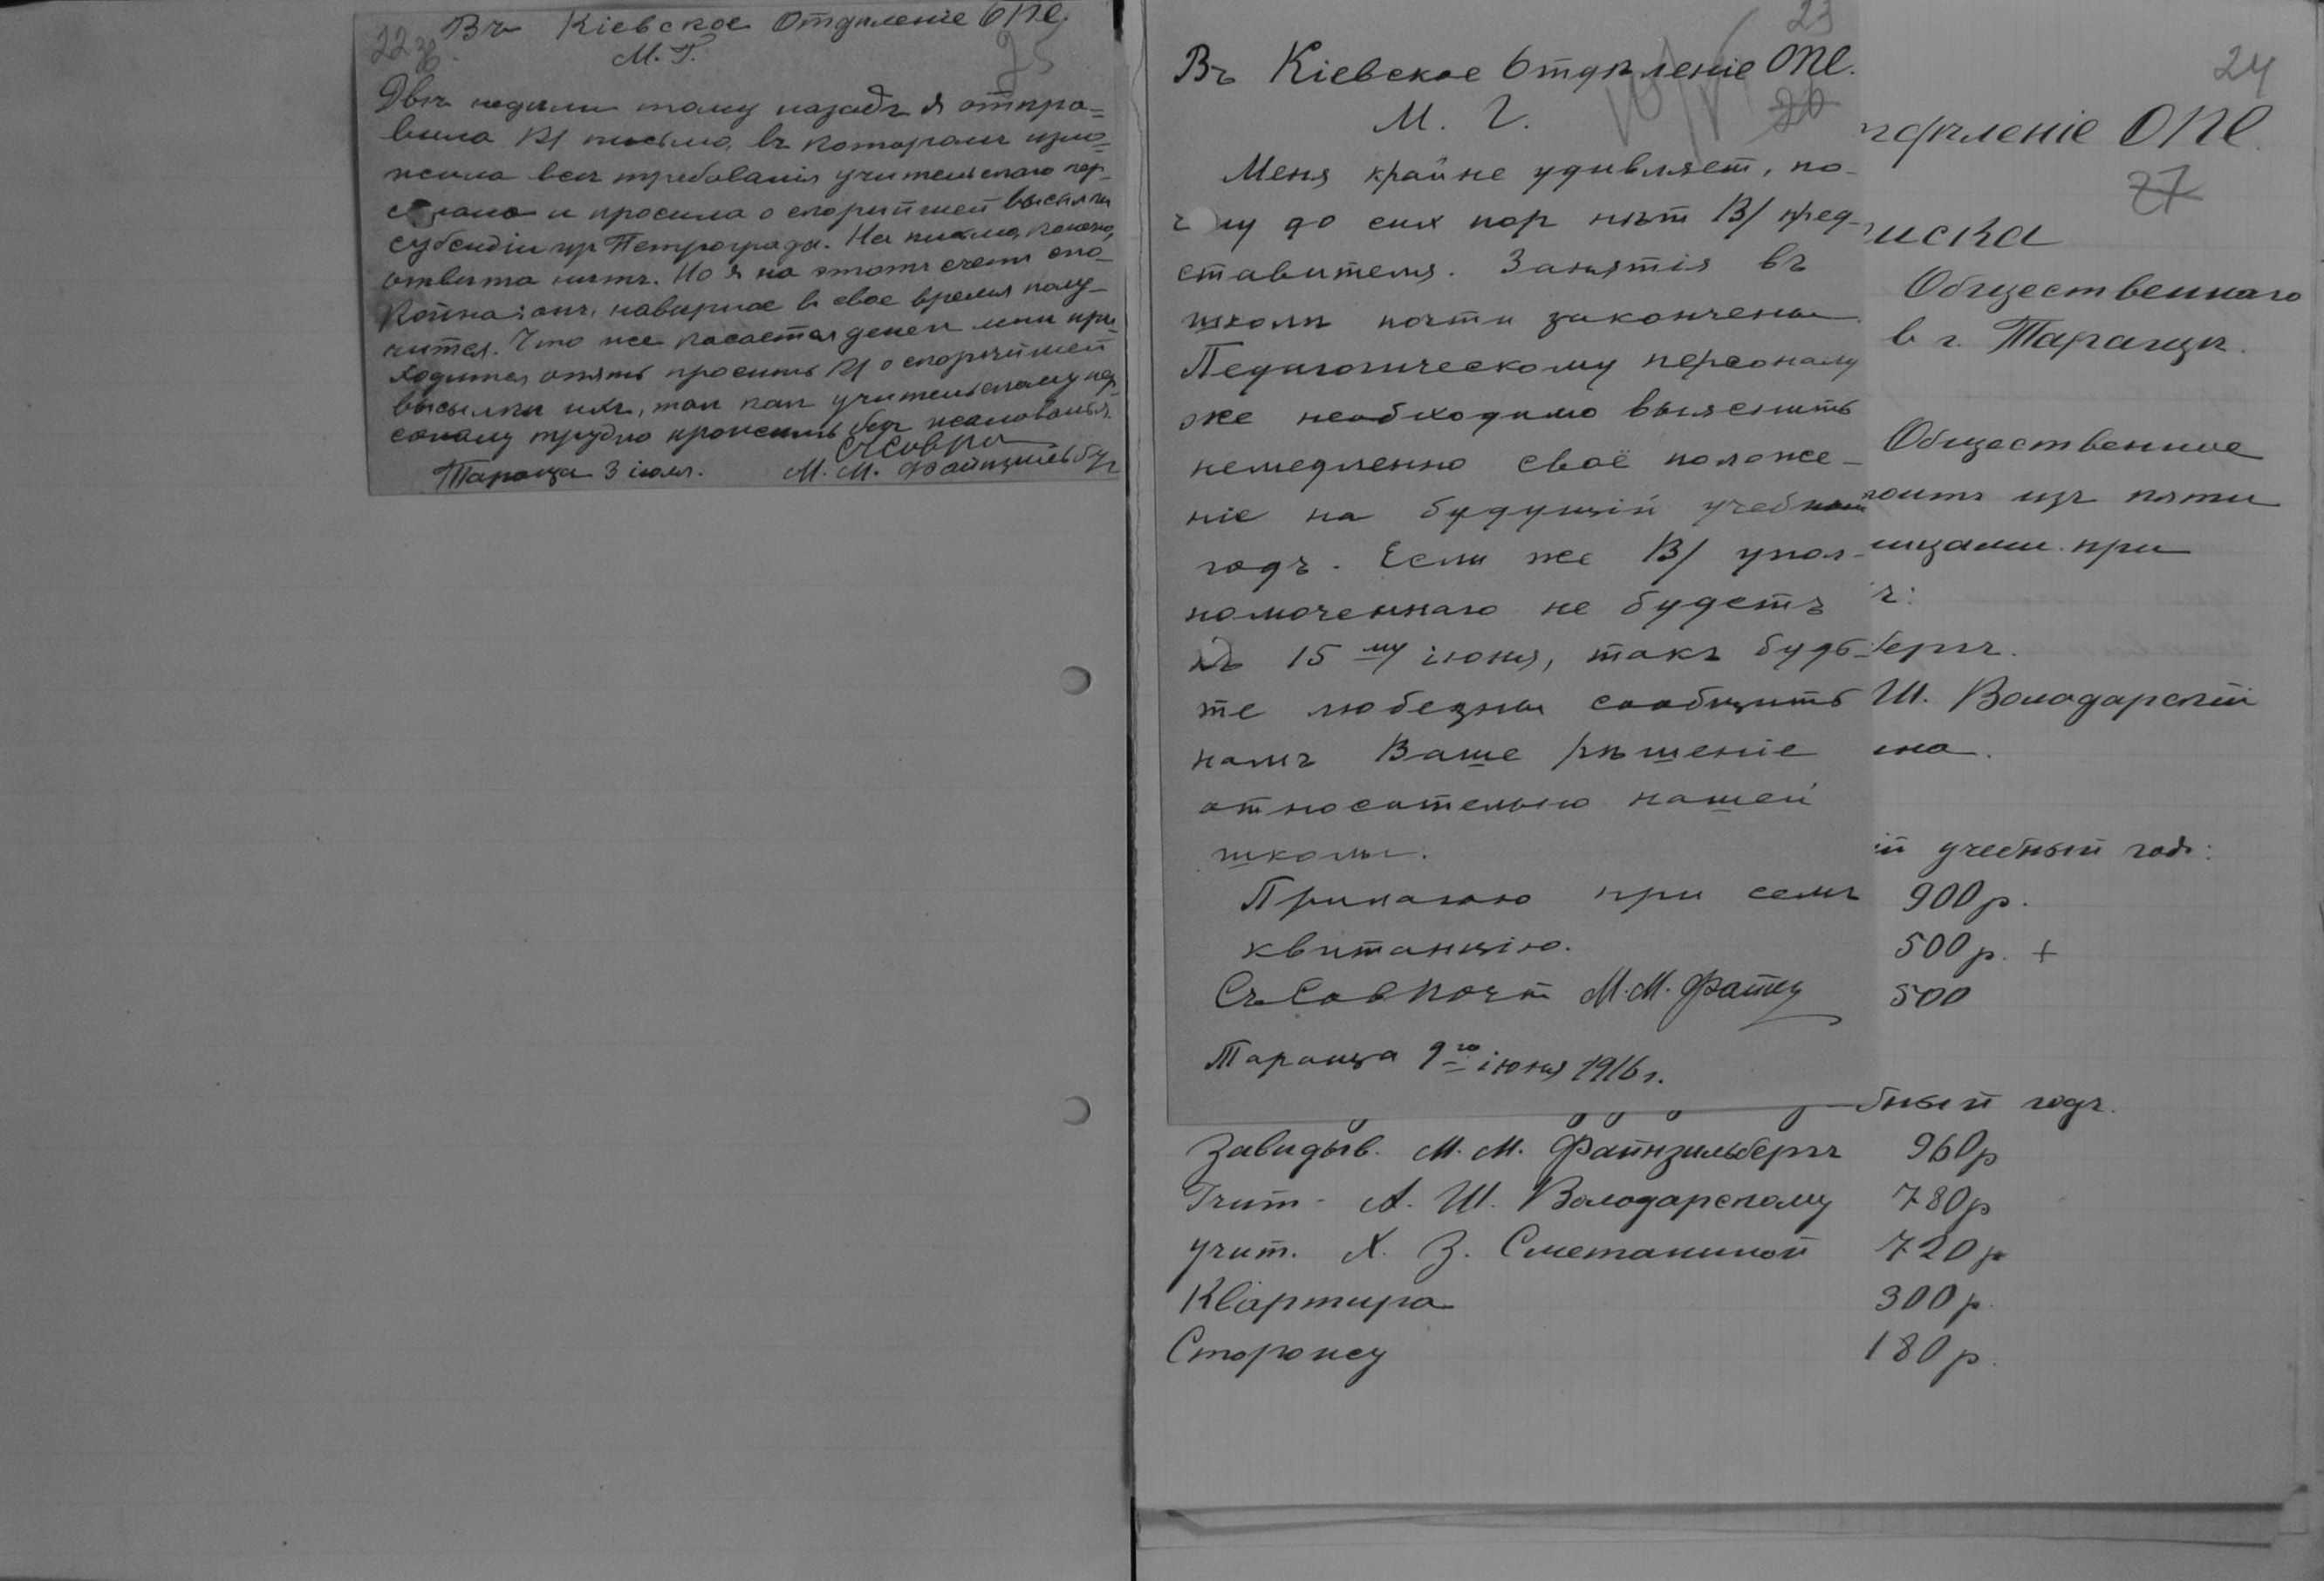 Въ Кіевское Отдѣленіе ОПЕ.
М. Г.
Двѣ недѣли тому назадъ я отпра=
вила В/ письмо, въ которомъ изло=
жила всѣ требованія учительскаго пер-
сонала и просила о скорѣйшей высылкѣ
субсидіи изъ Петрограда. На письмо, конечно,
отвѣта нѣтъ. Но я на этотъ счетъ спо-
койна: онъ, навѣрное въ свое время полу-
чится. Что же касается денегъ мнѣ при-
ходится опять просить В/ о скорѣйшей
высылкѣ ихъ, такъ какъ учительскому пер-
соналу трудно прожить безъ жалованья.
Тараща 3 іюля. М. М. Файнзильбергъ
23
Въ Кіевское Отдѣленіе ОПЕ.
М. Г.
20
Меня крайне удивляет, по-
чему до сих пор нѣт В/ пред-
ставителя. Занятія въ
школѣ почти закончены.
Педагогическому персоналу
же необходимо выяснить
немедленно своё положе-
ніе на будущій учебный
годъ. Если же В/ упол-
номоченнаго не будетъ
къ 15му іюня, такъ будь-
те любезны сообщить
намъ Ваше рѣшеніе
относительно нашей
школы.
Прилагаю при семъ
квитанцію.
Съ Сов почт М. М. Файнз
Тараща 9го іюня 1916 г.
24
тдѣленіе ОПЕ.
27
иска
Общественнаго
в г. Таращѣ.
Общественное
тоитъ изъ пяти
ицами при
ъ:
бергъ.
Ш. Володарскій
ина.
ій учебный годъ:
900 р.
500 р. +
500
бный годъ.
Завѣдыв. М. М. Файнзильбергъ 960 р
Учит. А. Ш. Володарскому 780 р
Учит. Х. З. Сметаниной 720 р
Квартира 300 р.
Сторожу 180 р.